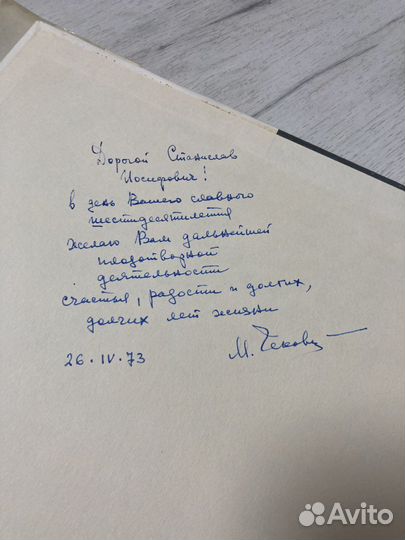 Дорогой Станислав
Иосифович!
в день Вашего славного
шестидесятилетия
желаю Вам дальнейшей
плодотворной
деятельности
счастья, радости и долгих,
долгих лет жизни
26.IV.73
М.
Avito